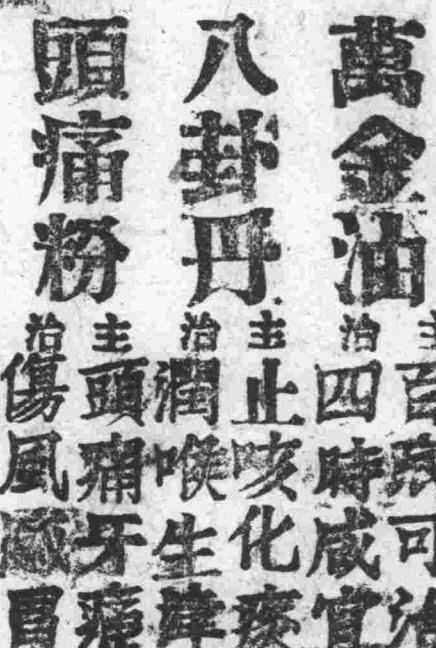 萬金油
主百病可治
治四時咸宜
八卦丹
主止咳化痰
治潤喉生津
頭痛粉
主頭痛牙痛
治傷風冒